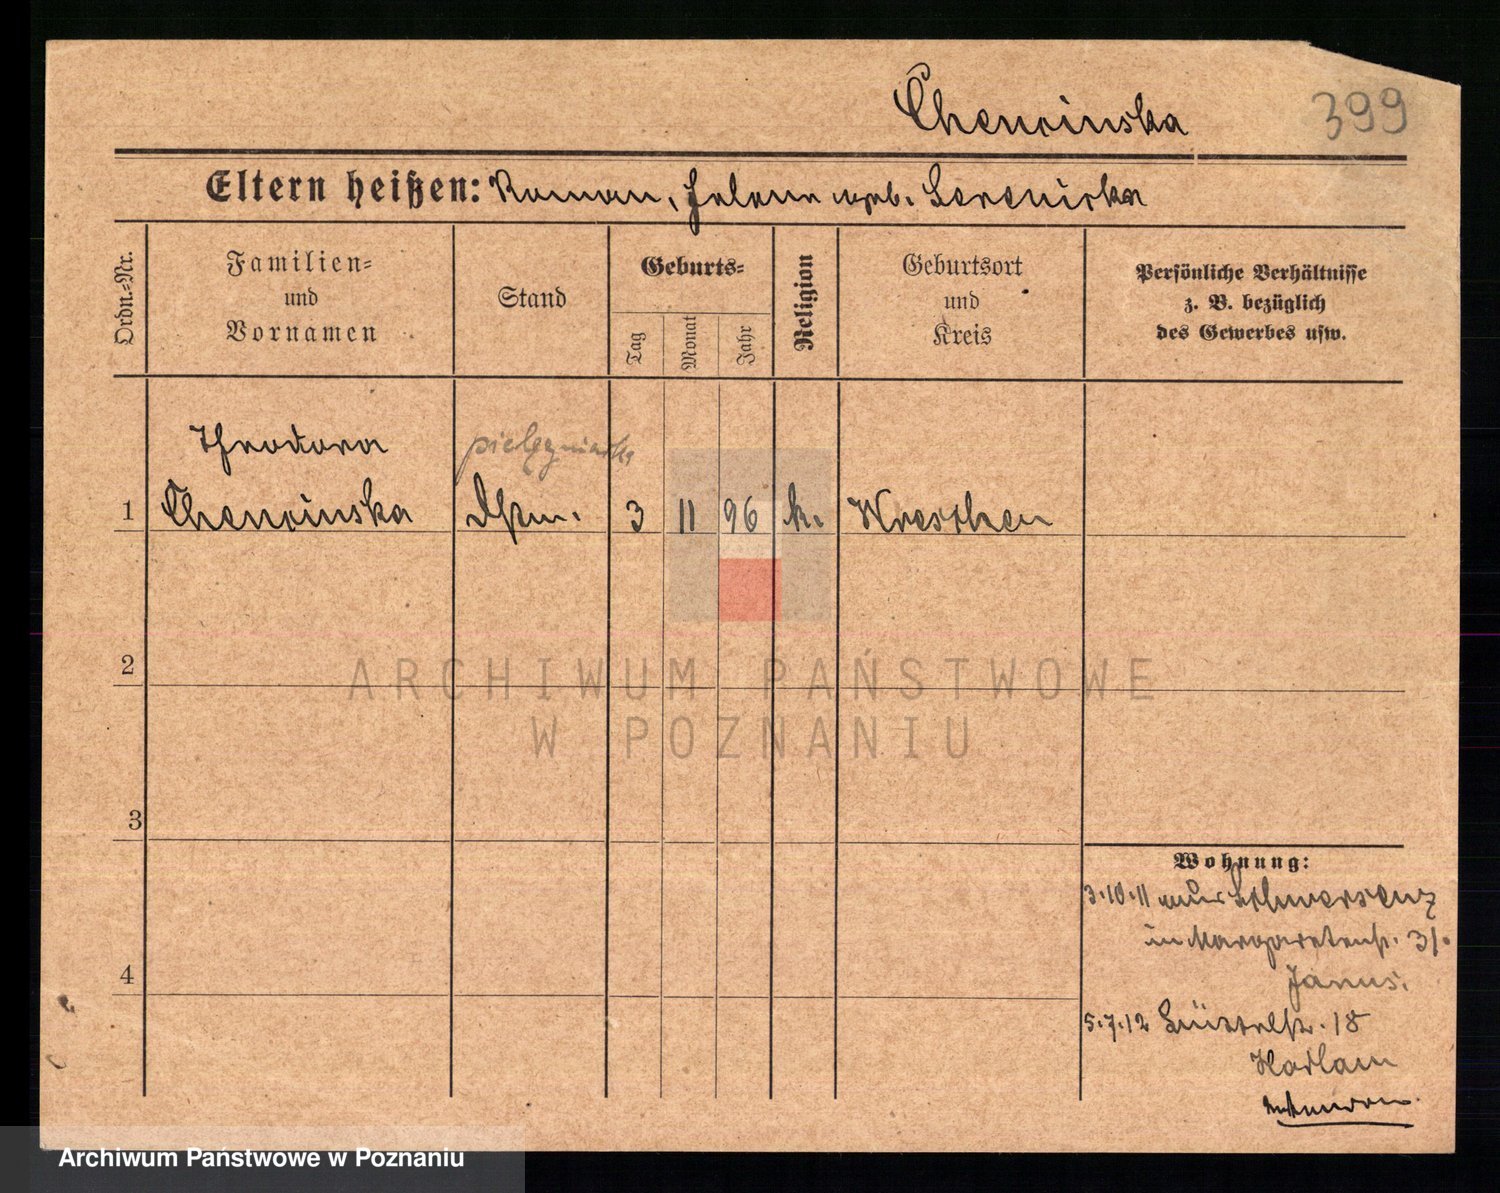 Chencinska
399
Eltern heißen: Roman, Helene geb. Serenicka
Ordn.-Nr.
Familien-
und
Vornamen
Stand
Geburts-
Tag
Monat
Jahr
Religion
Geburtsort
und
Kreis
Persönliche Verhältnisse
z. B. bezüglich
des Gewerbes usw.
Theodora
pielęgniarka
1 Chencinska 3 11 96 k. Wreschen
2
ARCHIWUM PAŃSTWOWE
W POZNANIU
3
Wohnung:
3.10.11 aus Schwersenz
in Margaretenstr. 3/.
Janus.
4
5.7.12 18
Archiwum Państwowe w Poznaniu